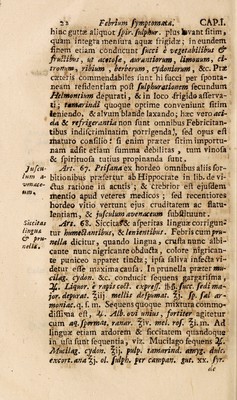 22 Febrium Symptomata. CAP.I.
hinc guttæ aliquot spir. sulphur. plus juvant sitim,
quam integra mensura aquæ frigidæ; in eundem
finem etiam conducunt succi è vegetabilibus &
fructibus, ut acetosæ, aurantiorum, limonum, ci-
treorum, ribium, berberum, cydoniorum, &c. Præ
cæteris commendabiles sunt hi succi per sponta-
neam residentiam post subputationem secundum
Helmontium depurati, & in loco frigido asserva-
ti; tamarindi quoque optime conveniunt siti
leniendo, & alvum blande laxando; hæc vero aci-
da & refrigerantia non sunt omnibus Febricitan-
tibus indiscriminatim porrigenda, sed opus est
maturo consilio: si enim præter sitim importu-
nam adsit etiam summa debilitas, tum vinosa
& spirituosa tutius propinanda sunt.
Juscu-
lum a-
venace-
um.
Art. 67. Ptisanæ ex hordeo omnibus aliis sor-
bitionibus præfertur ab Hippocrate in lib. de vi-
ctus ratione in acutis; & crebrior est ejusdem
mentio apud veteres medicos; sed recentiores
hordeo vitio vertunt ejus cruditatem ac flatu-
lentiam, & jusculum avenaceum substituunt.
Siccitas
lingua
& pru-
nella.
Art. 68. Siccitas & asperitas linguæ corrigun-
tur humectantibus, & lenientibus. Febris cum pru-
nella dicitur, quando lingua, crusta nunc albi-
cante nunc nigricante obducta, colore nigrican-
te puniceo apparet tincta; ipsa saliva infecta vi-
detur esse maxima causa. In prunella præter mu-
cilag. cydon. &c. conducit sequens gargarisma.
Liquor. è rapis coct. express.
mellis despumat. sp. sal ar-
moniac. q. s. m. Sequens quoque mixtura commo-
dissima est, Alb. ovi unius, fortiter agitetur
cum aq. spermat. ranar. mel. ros. m. Ad
linguæ etiam ardorem & siccitatem quandoque
in usu sunt sequentia, viz. Mucilago sequens
Mucilag. cydon. pulp. tamarind. amyg. dulc.
excort. ana ol. sulph. per campan. gut. xx. syr.
de